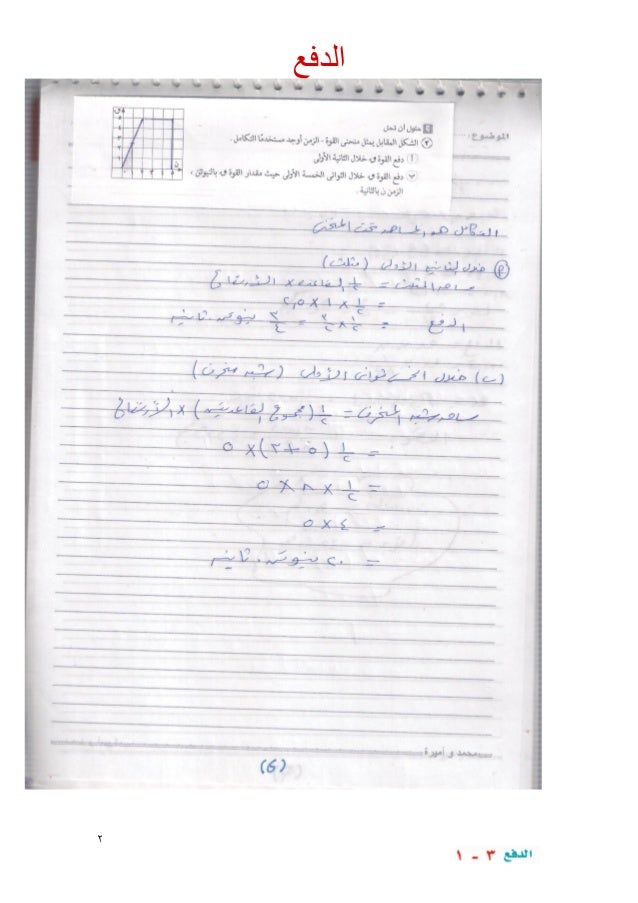 الدفع
الموضوع
٤ حاول أن تحل
٣ الشكل المقابل يمثل منحنى القوة - الزمن أوجد مستخدمًا التكامل.
أ دفع القوة ق خلال الثانية الأولى
ب دفع القوة ق خلال الثوانى الخمسة الأولى حيث مقدار القوة ق بالنيوتن،
الزمن ن بالثانية.
التكامل هو المساحة تحت المنحنى
خلال الثانية الأولى (مثلث)
مساحة المثلث = ١/٢ القاعدة × الارتفاع
= ١/٢ × ١ × ٢,٥
الدفع = ١/٢ × ٣/٢ = ٣/٤ نيوتن.ثانية
(ب) خلال الخمس ثوانى الأولى (شبه منحرف)
مساحة شبه المنحرف = ١/٢ (مجموع القاعدتين) × الارتفاع
= ١/٢ (٥ + ٣) × ٥
= ١/٢ × ٨ × ٥
= ٤ × ٥
= ٢٠ نيوتن.ثانية
محمد و أميرة
(6)
٢
الدفع ٣ - ١